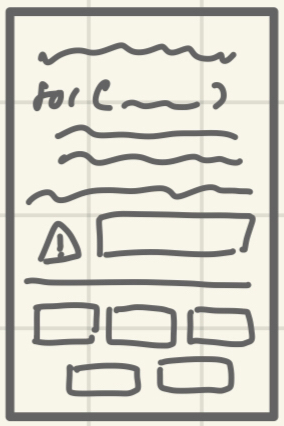 for ( )
!